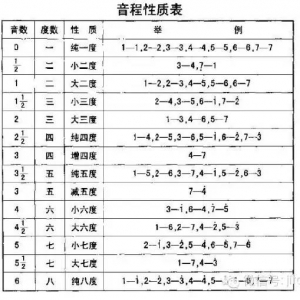 音程性质表
音数 度数 性质 举例
0 一 纯一度 1—1,2—2,3—3,4—4,5—5,6—6,7—7
1/2 二 小二度 3—4,7—1̇
1 二 大二度 1—2,2—3,4—5,5—6,6—7
1 1/2 三 小三度 2—4,3—5,6—1̇,7—2̇
2 三 大三度 1—3,4—6,5—7
2 1/2 四 纯四度 1—4,2—5,3—6,5—1̇,6—2̇,7—3̇
3 四 增四度 4—7
3 1/2 五 纯五度 1—5,2—6,3—7,4—1̇,5—2̇,6—3̇
3 五 减五度 7—4̇
4 六 小六度 3—1̇,6—4̇,7—5̇
4 1/2 六 大六度 1—6,2—7,4—2̇,5—3̇
5 七 小七度 2—1̇,3—2̇,5—4̇,6—5̇,7—6̇
5 1/2 七 大七度 1—7,4—3̇
6 八 纯八度 1—1̇,2—2̇,3—3̇,4—4̇,5